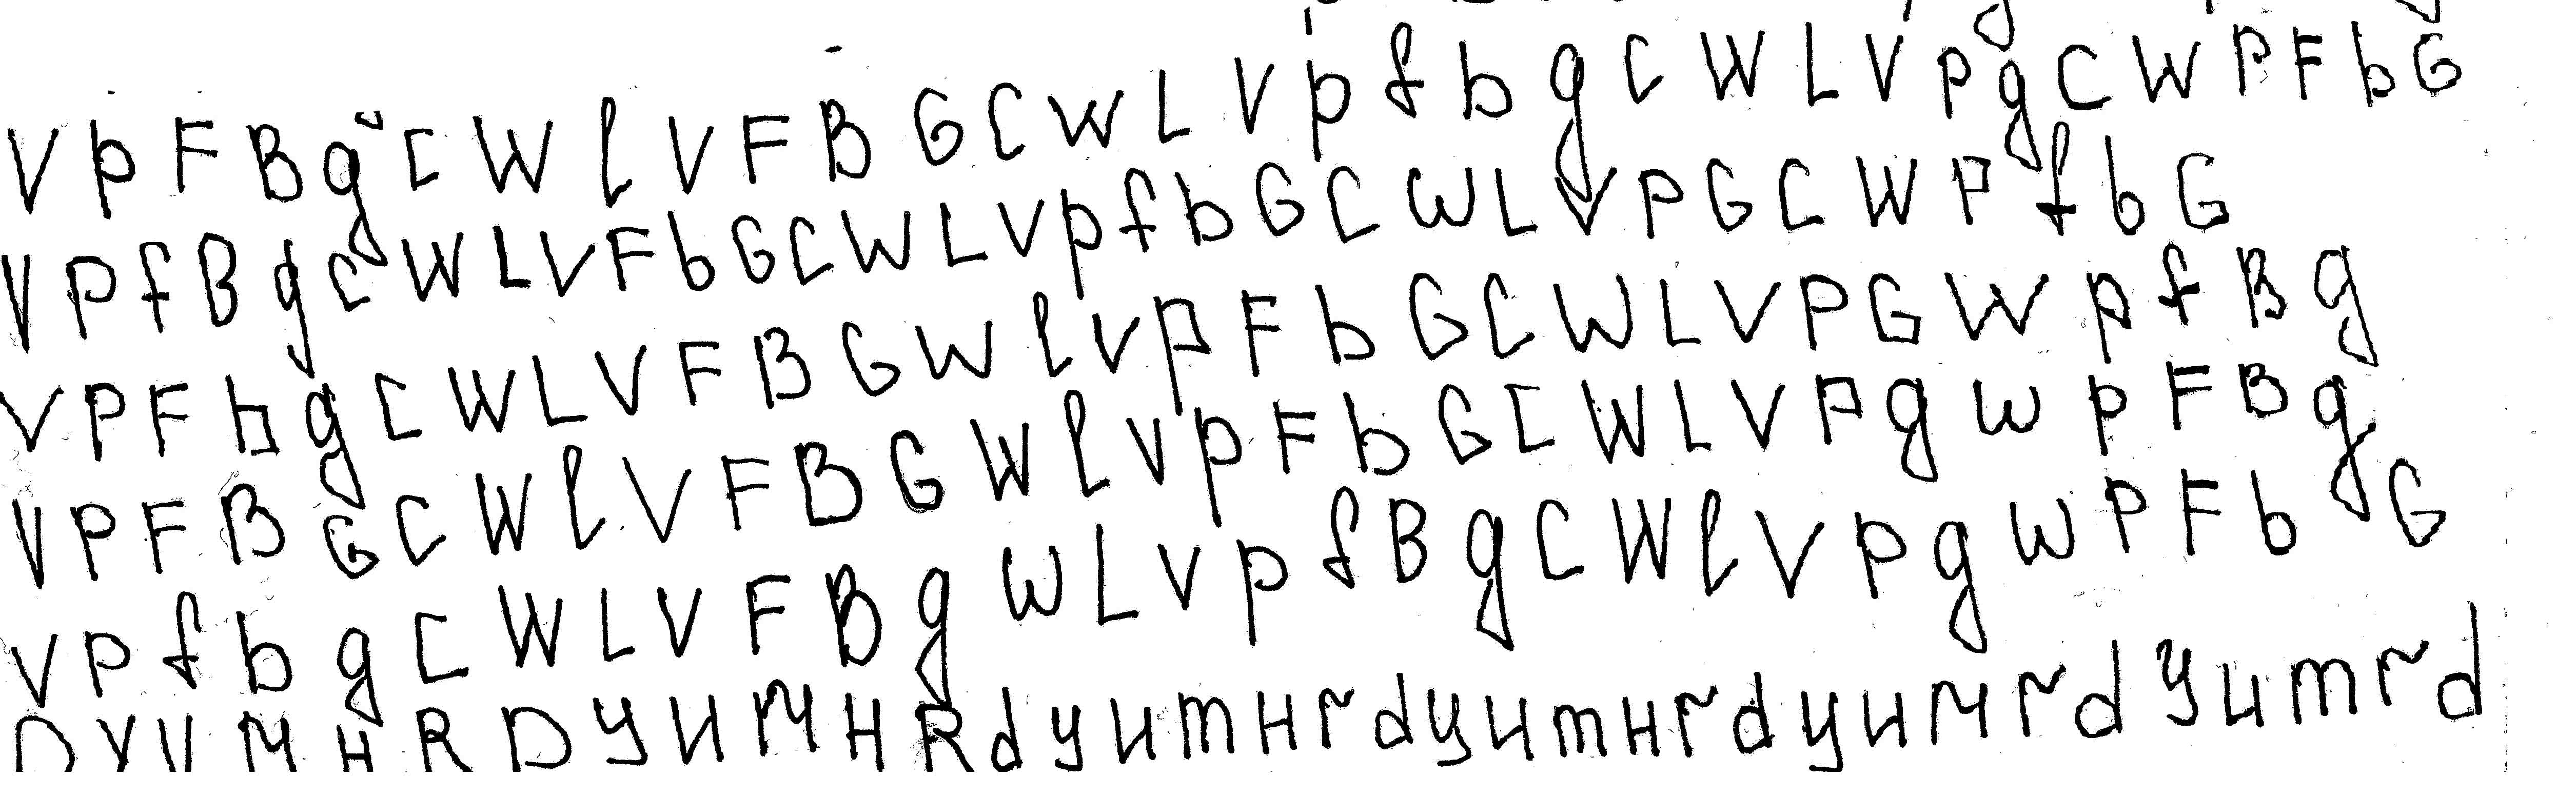 V p F B g C W l V F B G C W L V p f b g C W L V p g C W P F b G
V P f B g C W L V F b G C W L V p f b G C W L V P G C W P f b G
V P F b g C W L V F B G W l v P F b G C W L V P G W p f B g
V P F B G C W l V F B G W l v p F b G C W L V P g w p F B g
V P f b g C W L V F B g W L V p f B g C W l V P g W P F b G
D y U M H R D y U M H R d y u m H r d y u m H r d y u M r d y u m r d